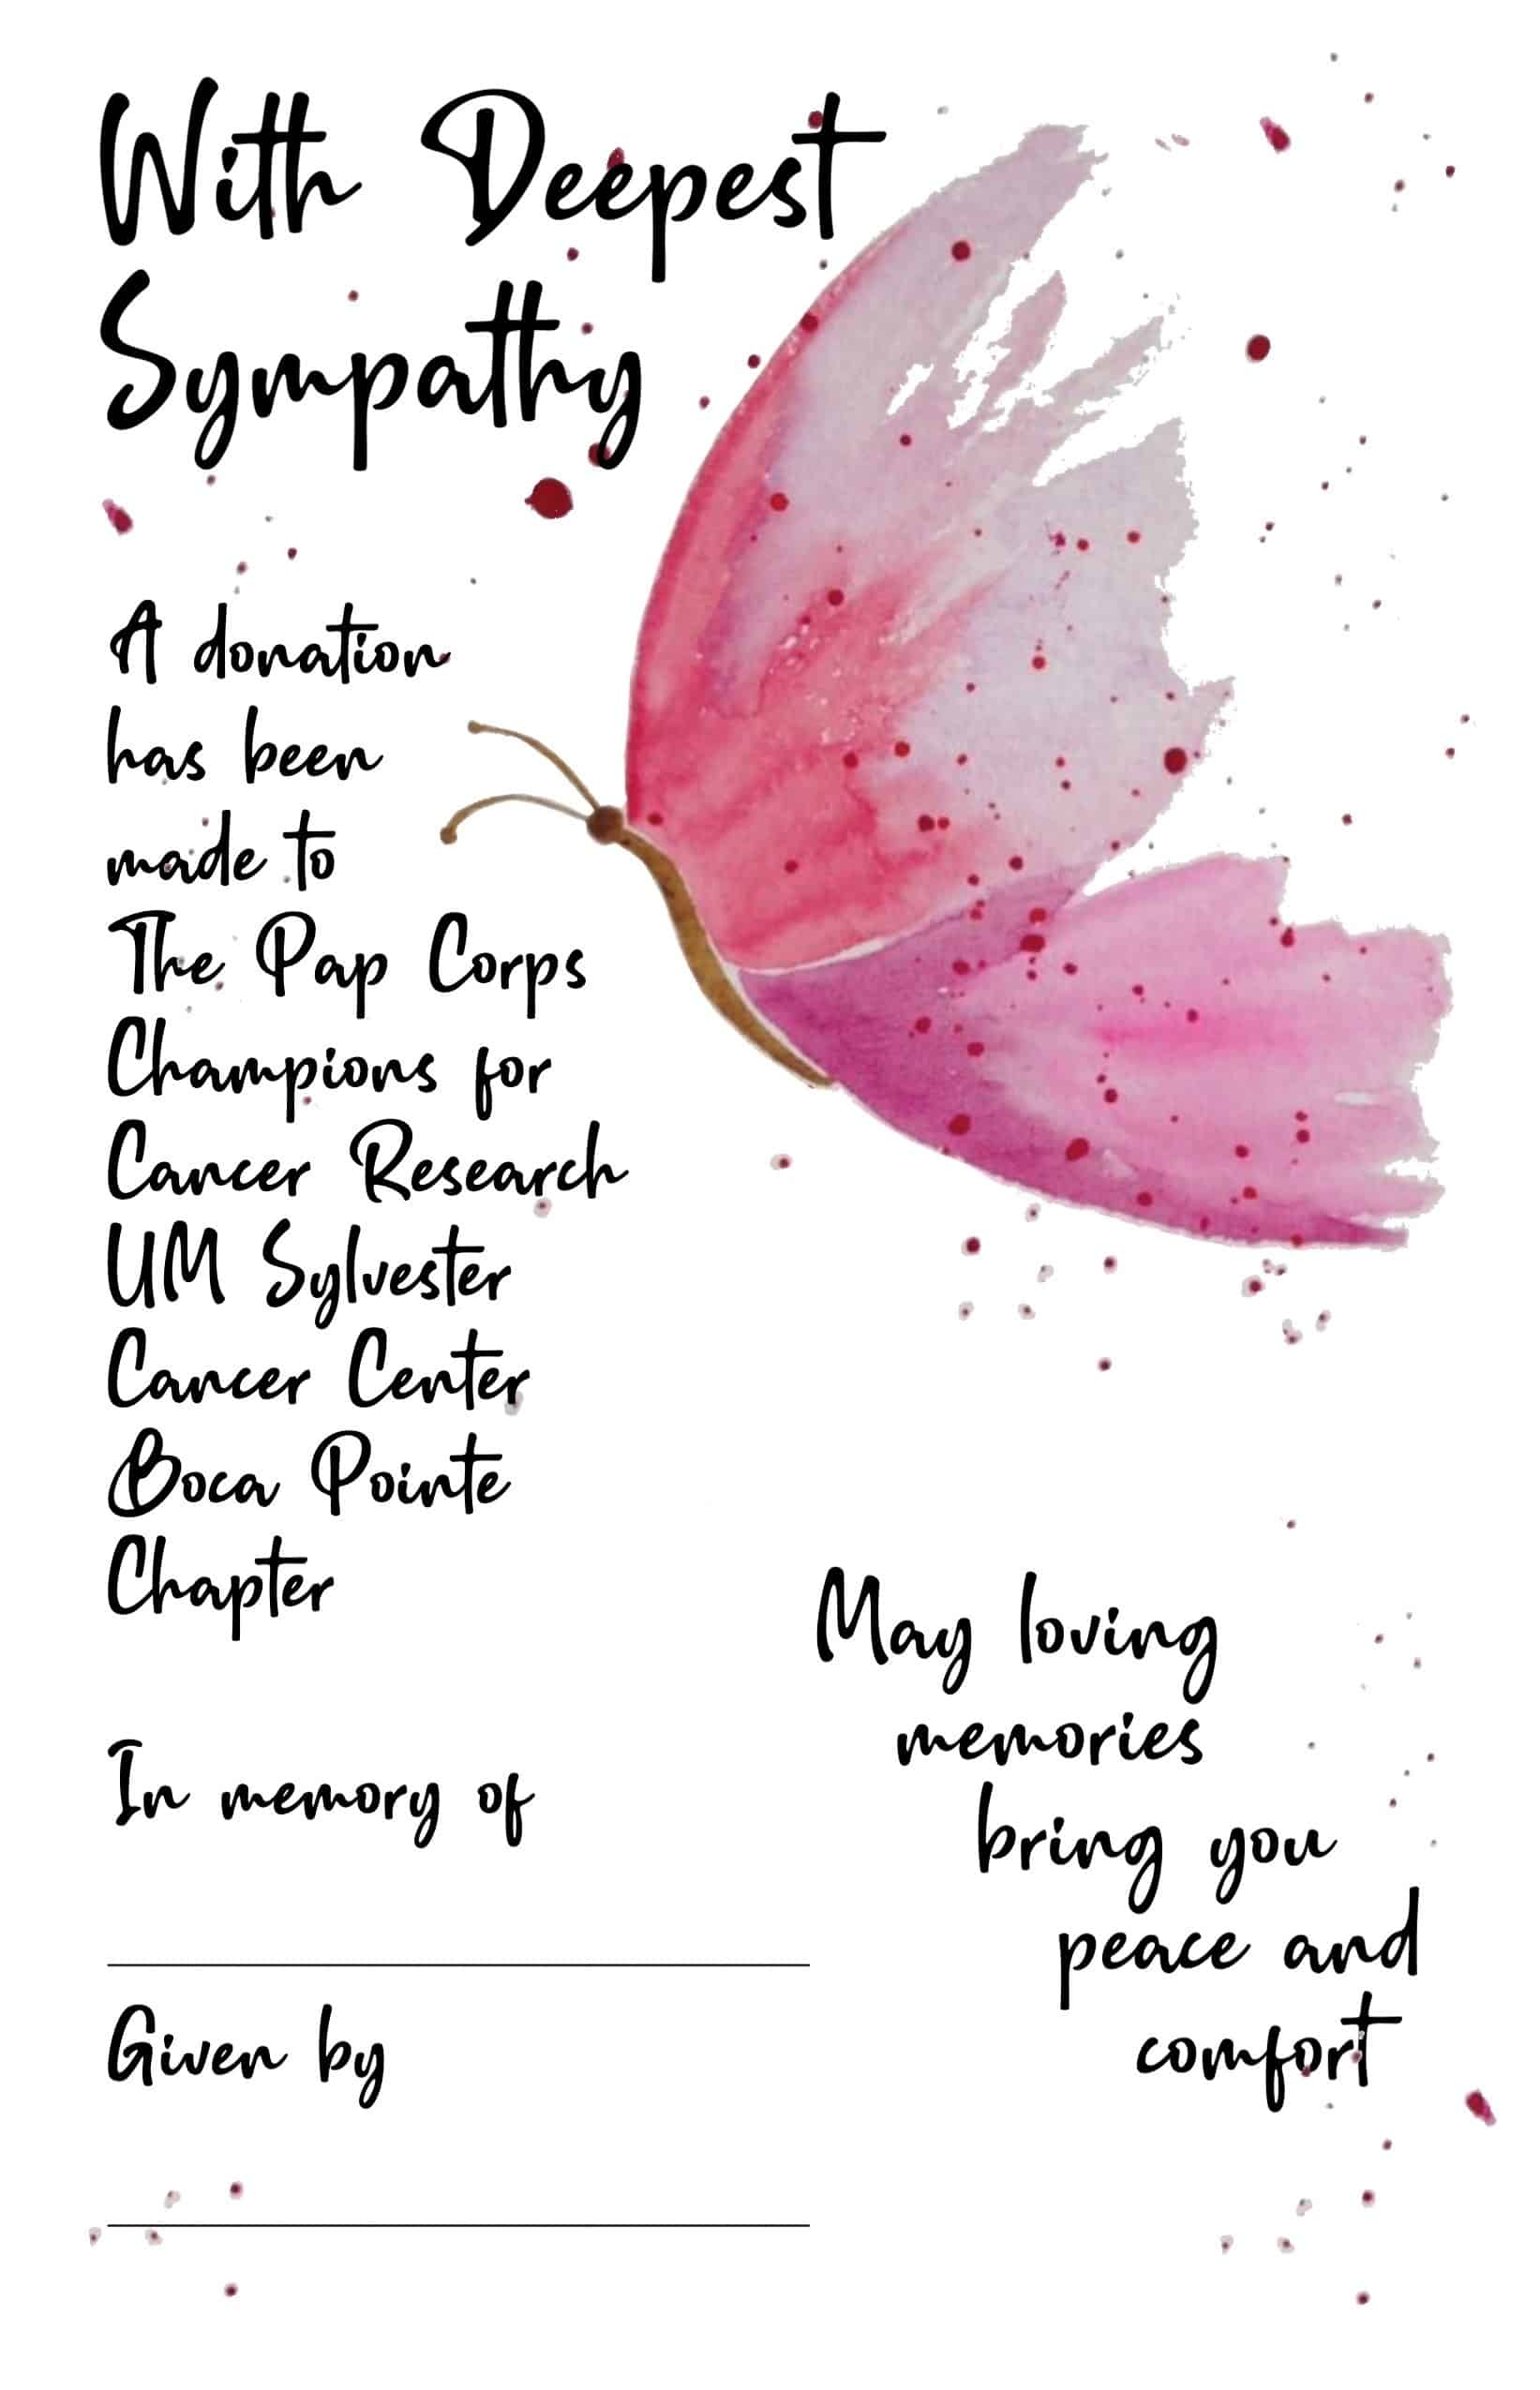 With Deepest
Sympathy
A donation
has been
made to
The Pap Corps
Champions for
Cancer Research
UM Sylvester
Cancer Center
Boca Pointe
Chapter
In memory of
Given by
May loving
memories
bring you
peace and
comfort